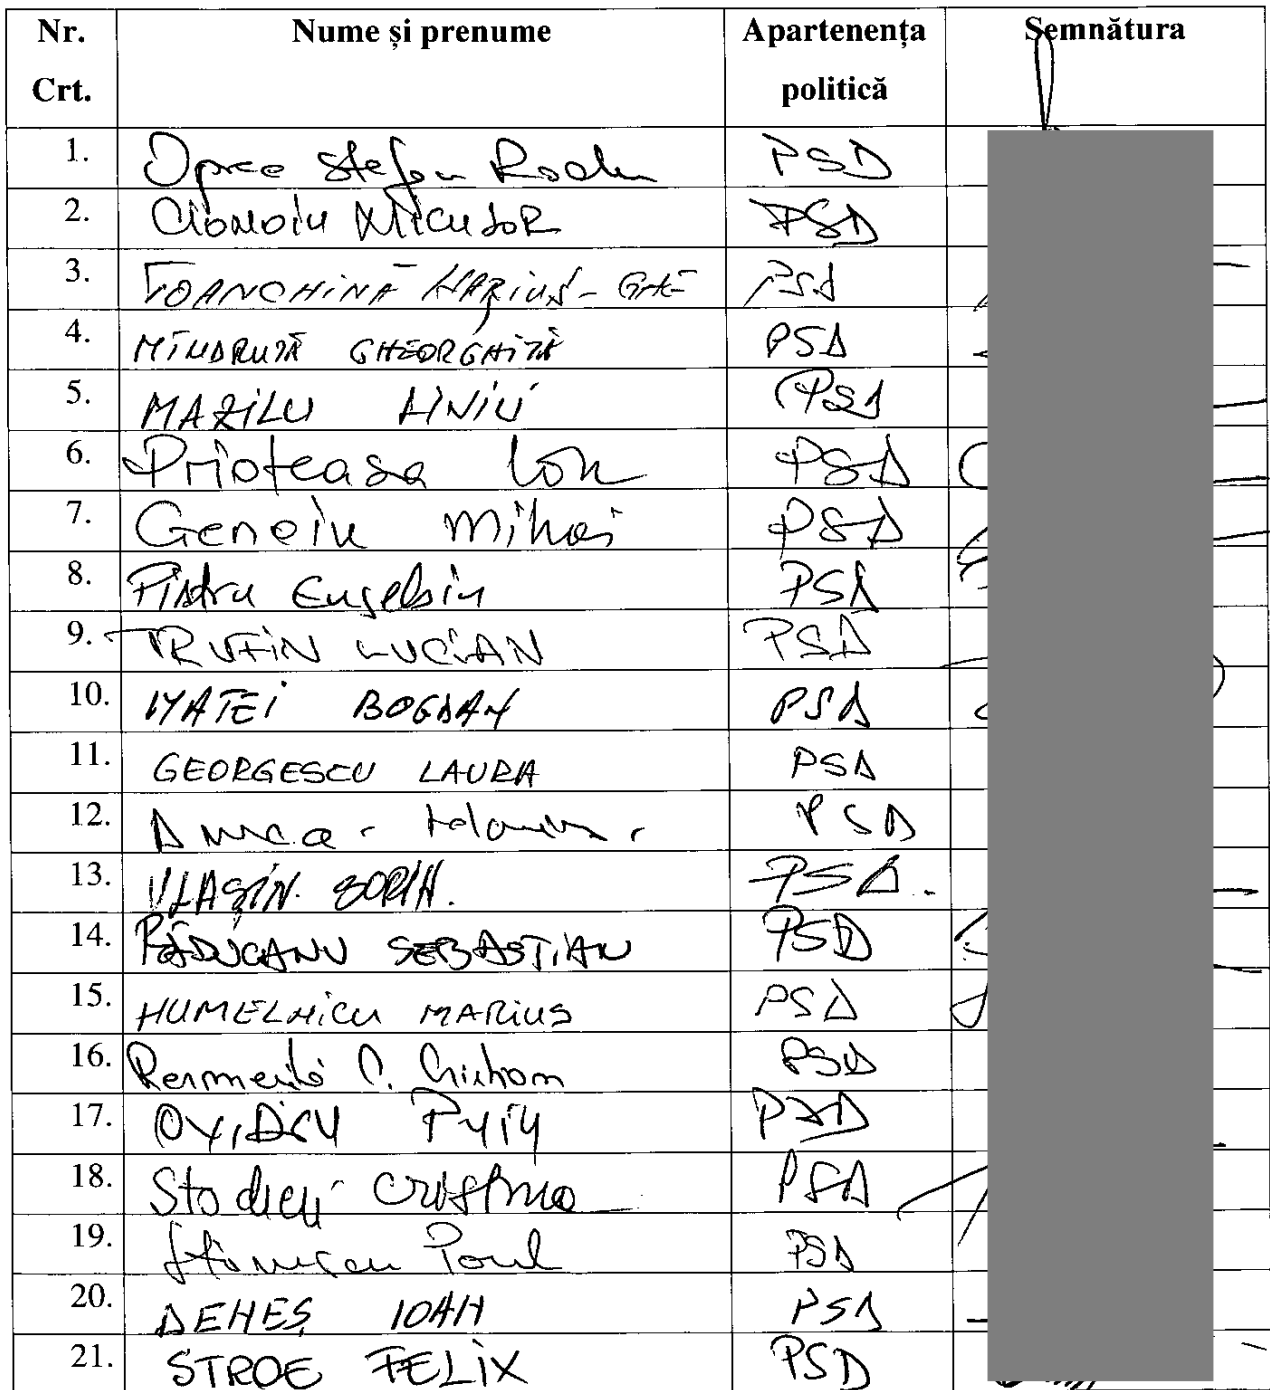 Nr. Crt. Nume și prenume Apartenența politică Semnătura
1. Oprea Stefan Radu PSD
2. Cionoiu Nicusor PSD
3. TOANCHINĂ MARIUS-GHE PSD
4. MÎNDRUȚĂ GHEORGHIȚĂ PSD
5. MAZILU LIVIU PSD
6. Prioteasa Ion PSD
7. Genoiu Mihai PSD
8. Pistru Eusebiu PSD
9. TRUFIN LUCIAN PSD
10. MATEI BOGDAN PSD
11. GEORGESCU LAURA PSD
12. PSD
13. VLAȘIN SORIN. PSD.
14. RĂDUCANU SEBASTIAN PSD
15. HUMELNICU MARIUS PSD
16. C. PSD
17. PSD
18. Stocheci Cristina PSD
19. Stănescu Paul PSD
20. DENEȘ IOAN PSD
21. STROE FELIX PSD